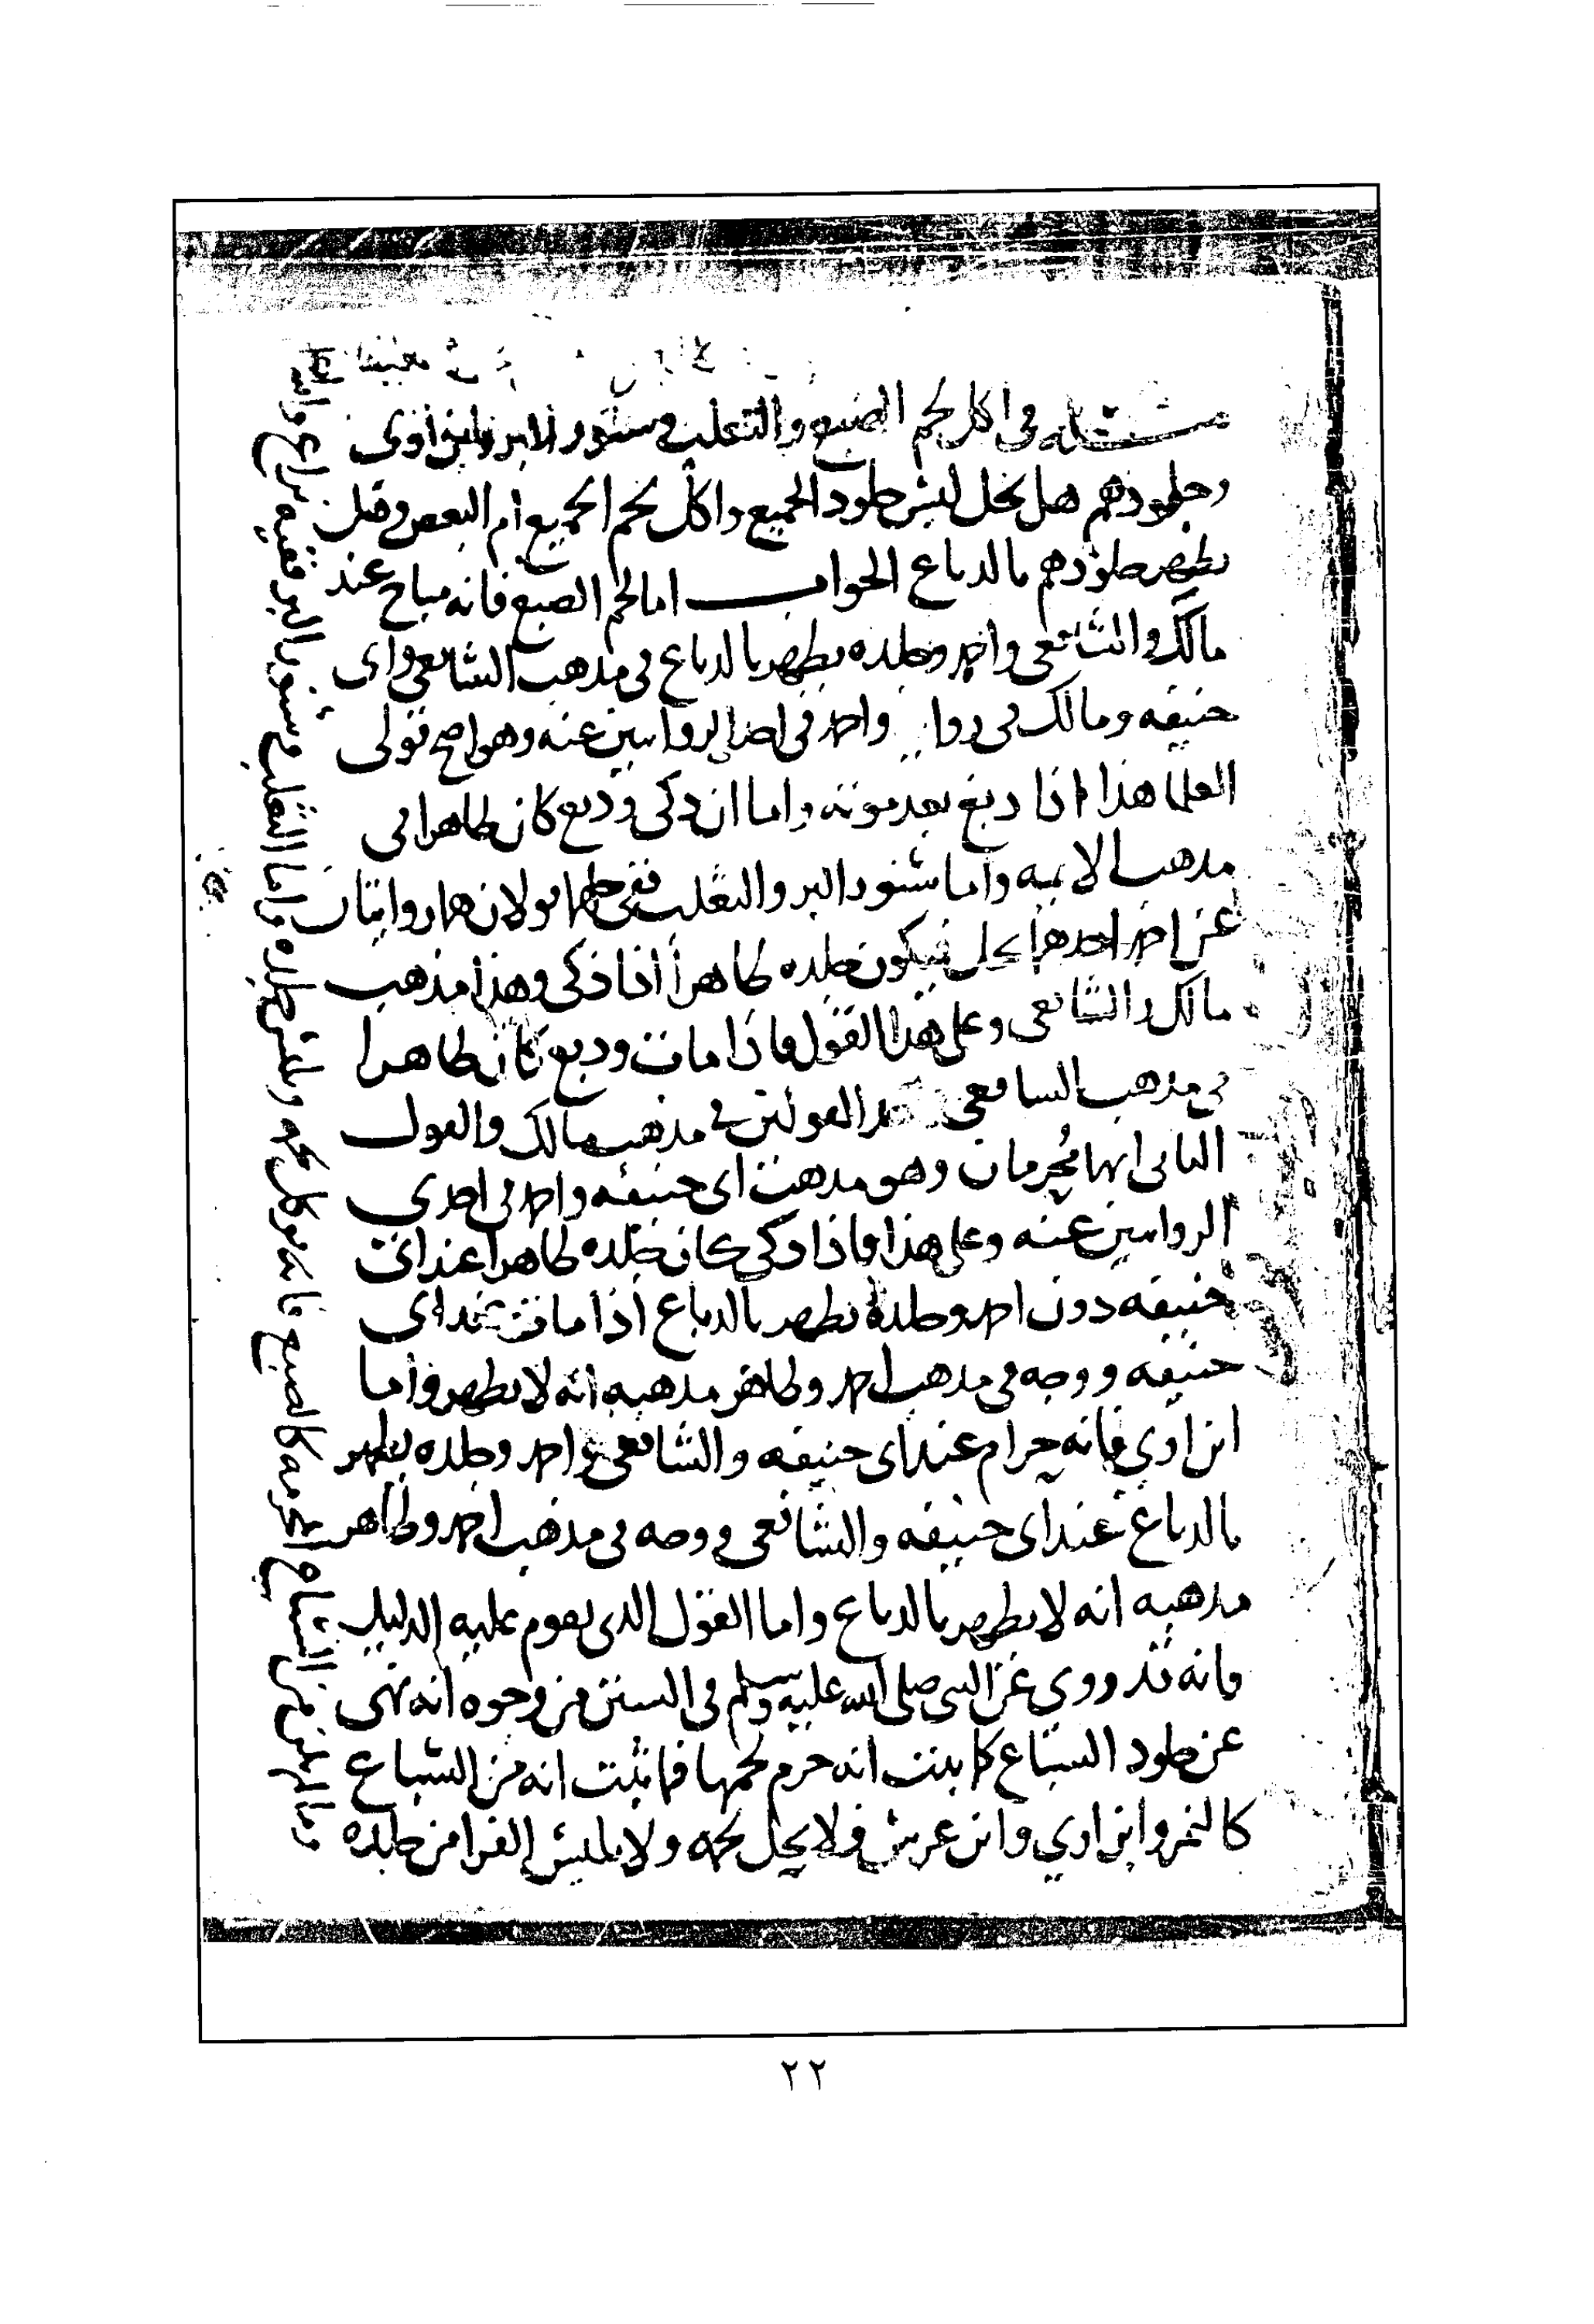 مسئلة في اكل لحم الضبع والثعلب وسنور البر وابن أوى
وجلودهم هل يحل لبس جلود الجميع واكل لحم الجميع ام البعض وهل
يطهر جلودهم بالدباغ الجواب اما لحم الضبع فانه مباح عند
مالك والشافعي واحمد وجلده يطهر بالدباغ في مذهب الشافعي وابي
حنيفه ومالك في روا واحمد في احد الروايتين عنه وهو اصح قولي
العلما هذا اذا دبغ بعد موته واما ان ذكى ودبغ كان طاهرا في
مذهب الايمه واما سنور البر والثعلب ففي حلهما قولان هما روايتان
عن احمد احدهما يحل فيكون جلده طاهرا اذا ذكى وهذا مذهب
مالك والشافعي وعلى هذا القول فاذا مات ودبغ كان طاهرا
في مذهب الشافعي القولين في مذهب مالك والقول
الثاني انهما محرمان وهو مذهب ابي حنيفه واحمد في احدي
الروايتين عنه وعلى هذا فاذا ذكي كان جلده طاهرا عند ابي
حنيفه دون احمد وجلده يطهر بالدباغ اذا مات عند ابي
حنيفه ووجه في مذهب احمد وظاهر مذهبه انه لا يطهر واما
ابن اوي فانه حرام عند ابي حنيفه والشافعي واحمد وجلده يطهر
بالدباغ عند ابي حنيفه والشافعي ووجه في مذهب احمد وظاهر
مذهبه انه لا يطهر بالدباغ واما القول الذي يقوم عليه الدليل
فانه قد روي عن النبي صلى الله عليه وسلم في السنن من وجوه انه نهى
عن جلود السباع كما ثبت انه حرم لحمها فما ثبت انه من السباع
كالنمر وابن اوي وابن عرس فلا يحل لحمه ولا يلبس الفرا من جلده
وما لم يكن من السباع المحرمه كالضبع فانه يوكل لحمه ويلبس جلده واما الثعلب وسنور البر ففيه نزاع
٢٢